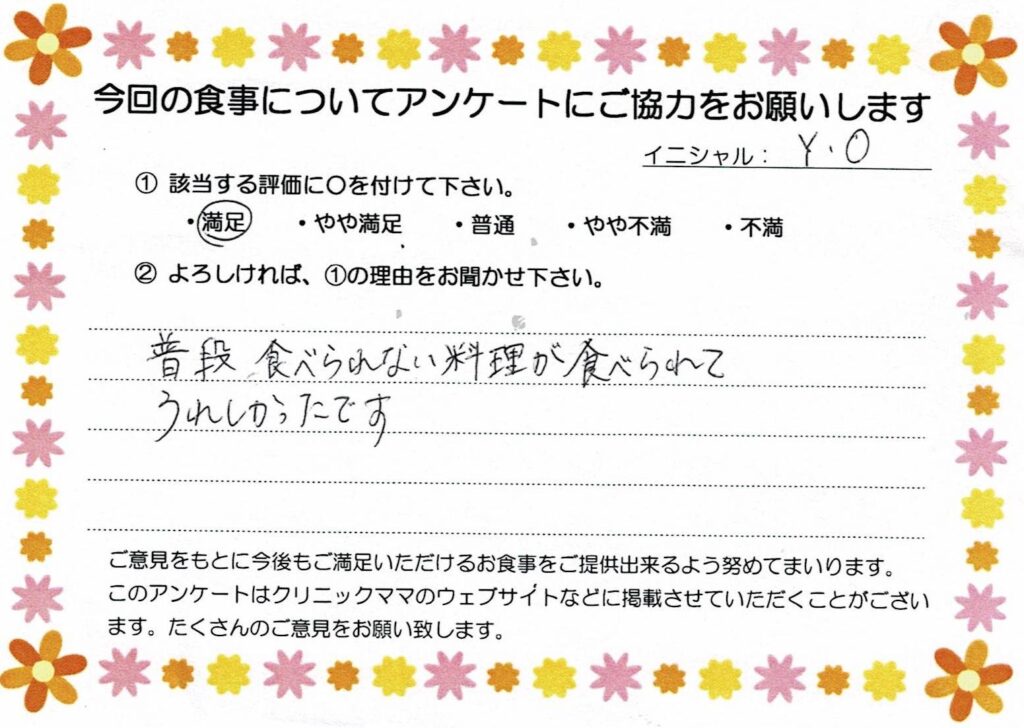 今回の食事についてアンケートにご協力をお願いします
イニシャル： Y.O
① 該当する評価に〇を付けて下さい。
・満足 ・やや満足 ・普通 ・やや不満 ・不満
② よろしければ、①の理由をお聞かせ下さい。
普段 食べられない料理が食べられて
うれしかったです
ご意見をもとに今後もご満足いただけるお食事をご提供出来るよう努めてまいります。
このアンケートはクリニックママのウェブサイトなどに掲載させていただくことがござい
ます。たくさんのご意見をお願い致します。